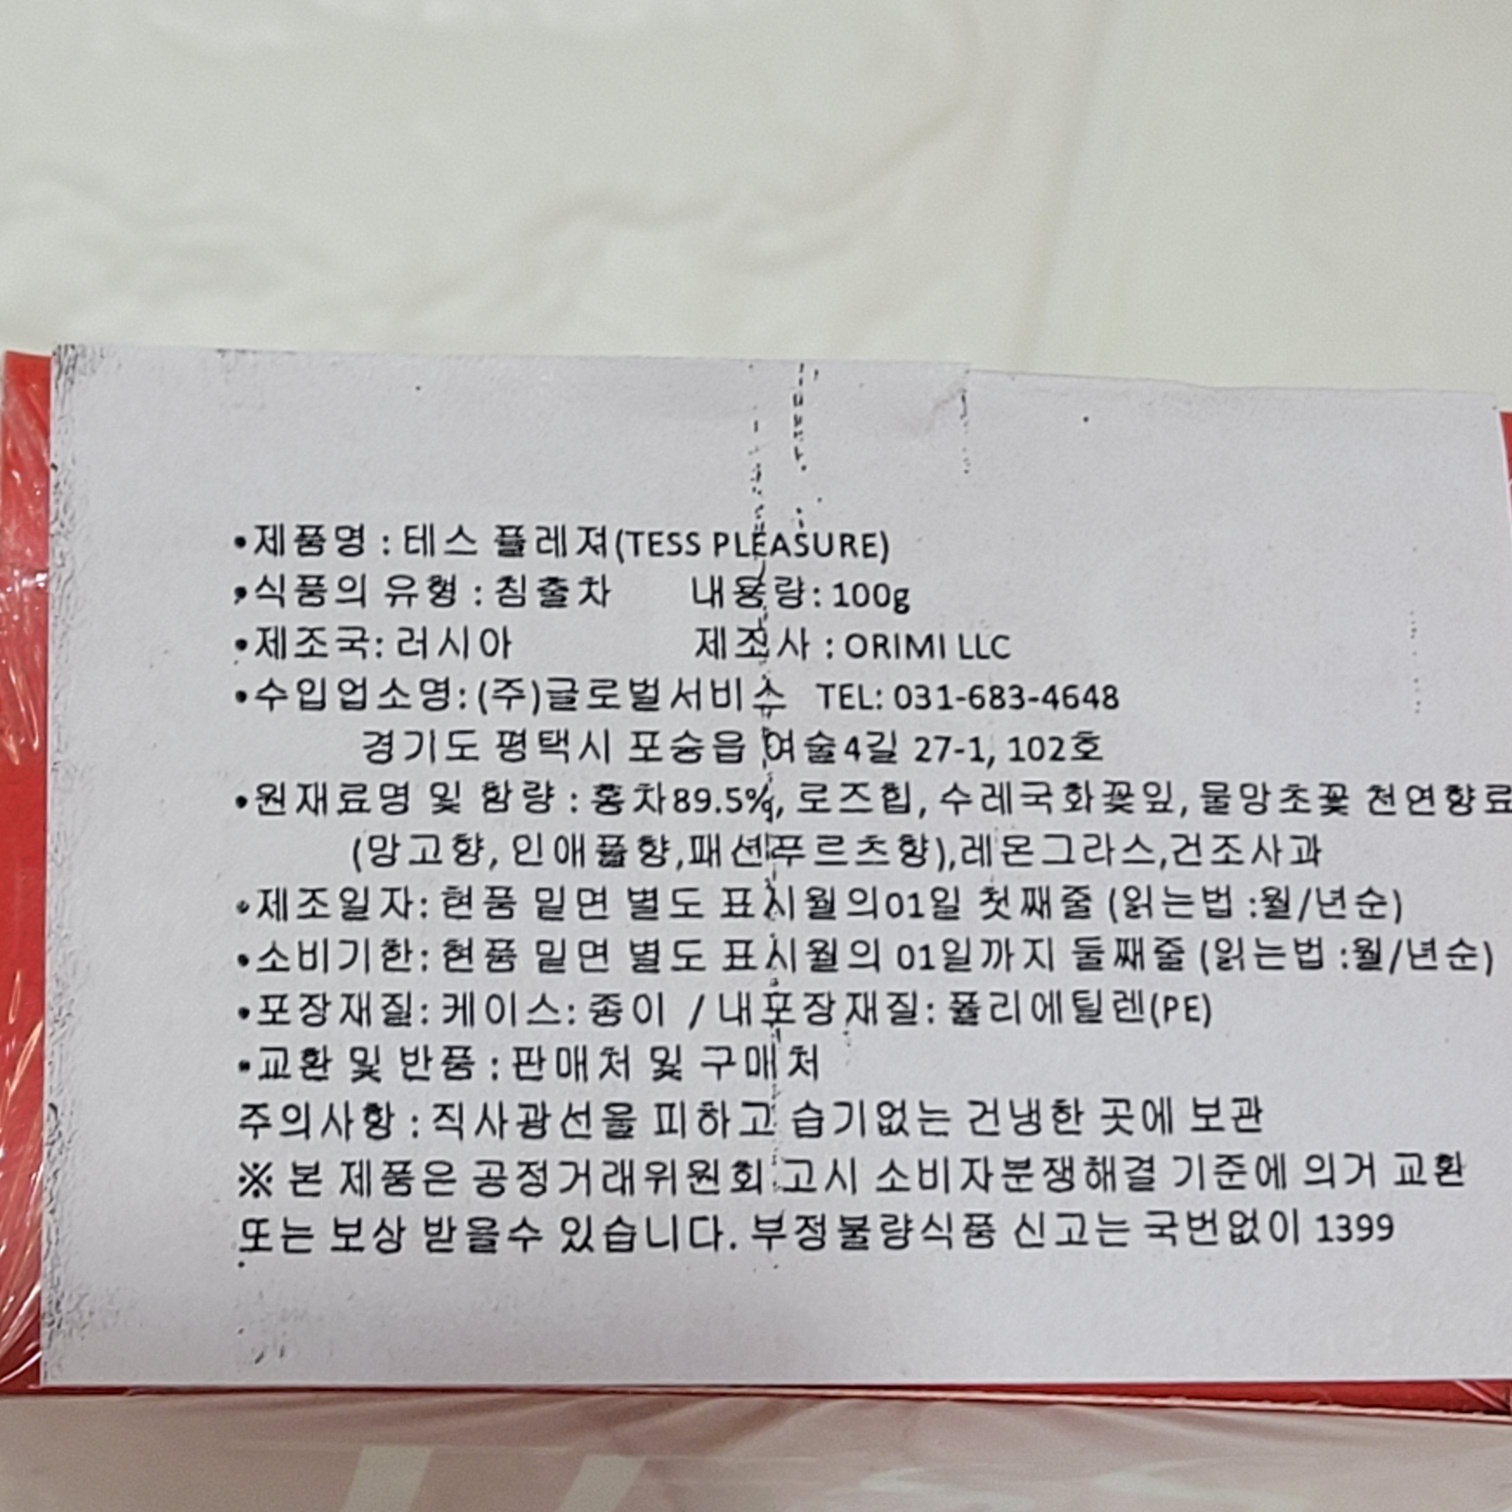 •제품명 : 테스 플레져(TESS PLEASURE)
•식품의 유형 : 침출차 내용량: 100g
•제조국: 러시아 제조사 : ORIMI LLC
•수입업소명: (주)글로벌서비스 TEL: 031-683-4648
경기도 평택시 포승읍 여술4길 27-1, 102호
•원재료명 및 함량 : 홍차89.5%, 로즈힙, 수레국화꽃잎, 물망초꽃 천연향료
(망고향, 인애플향,패션푸르츠향),레몬그라스,건조사과
•제조일자: 현품 밑면 별도 표시월의01일 첫째줄 (읽는법 :월/년순)
•소비기한: 현품 밑면 별도 표시월의 01일까지 둘째줄 (읽는법 :월/년순)
•포장재질: 케이스: 종이 / 내포장재질: 폴리에틸렌(PE)
•교환 및 반품 : 판매처 및 구매처
주의사항 : 직사광선을 피하고 습기없는 건냉한 곳에 보관
※ 본 제품은 공정거래위원회 고시 소비자분쟁해결 기준에 의거 교환
또는 보상 받을수 있습니다. 부정불량식품 신고는 국번없이 1399